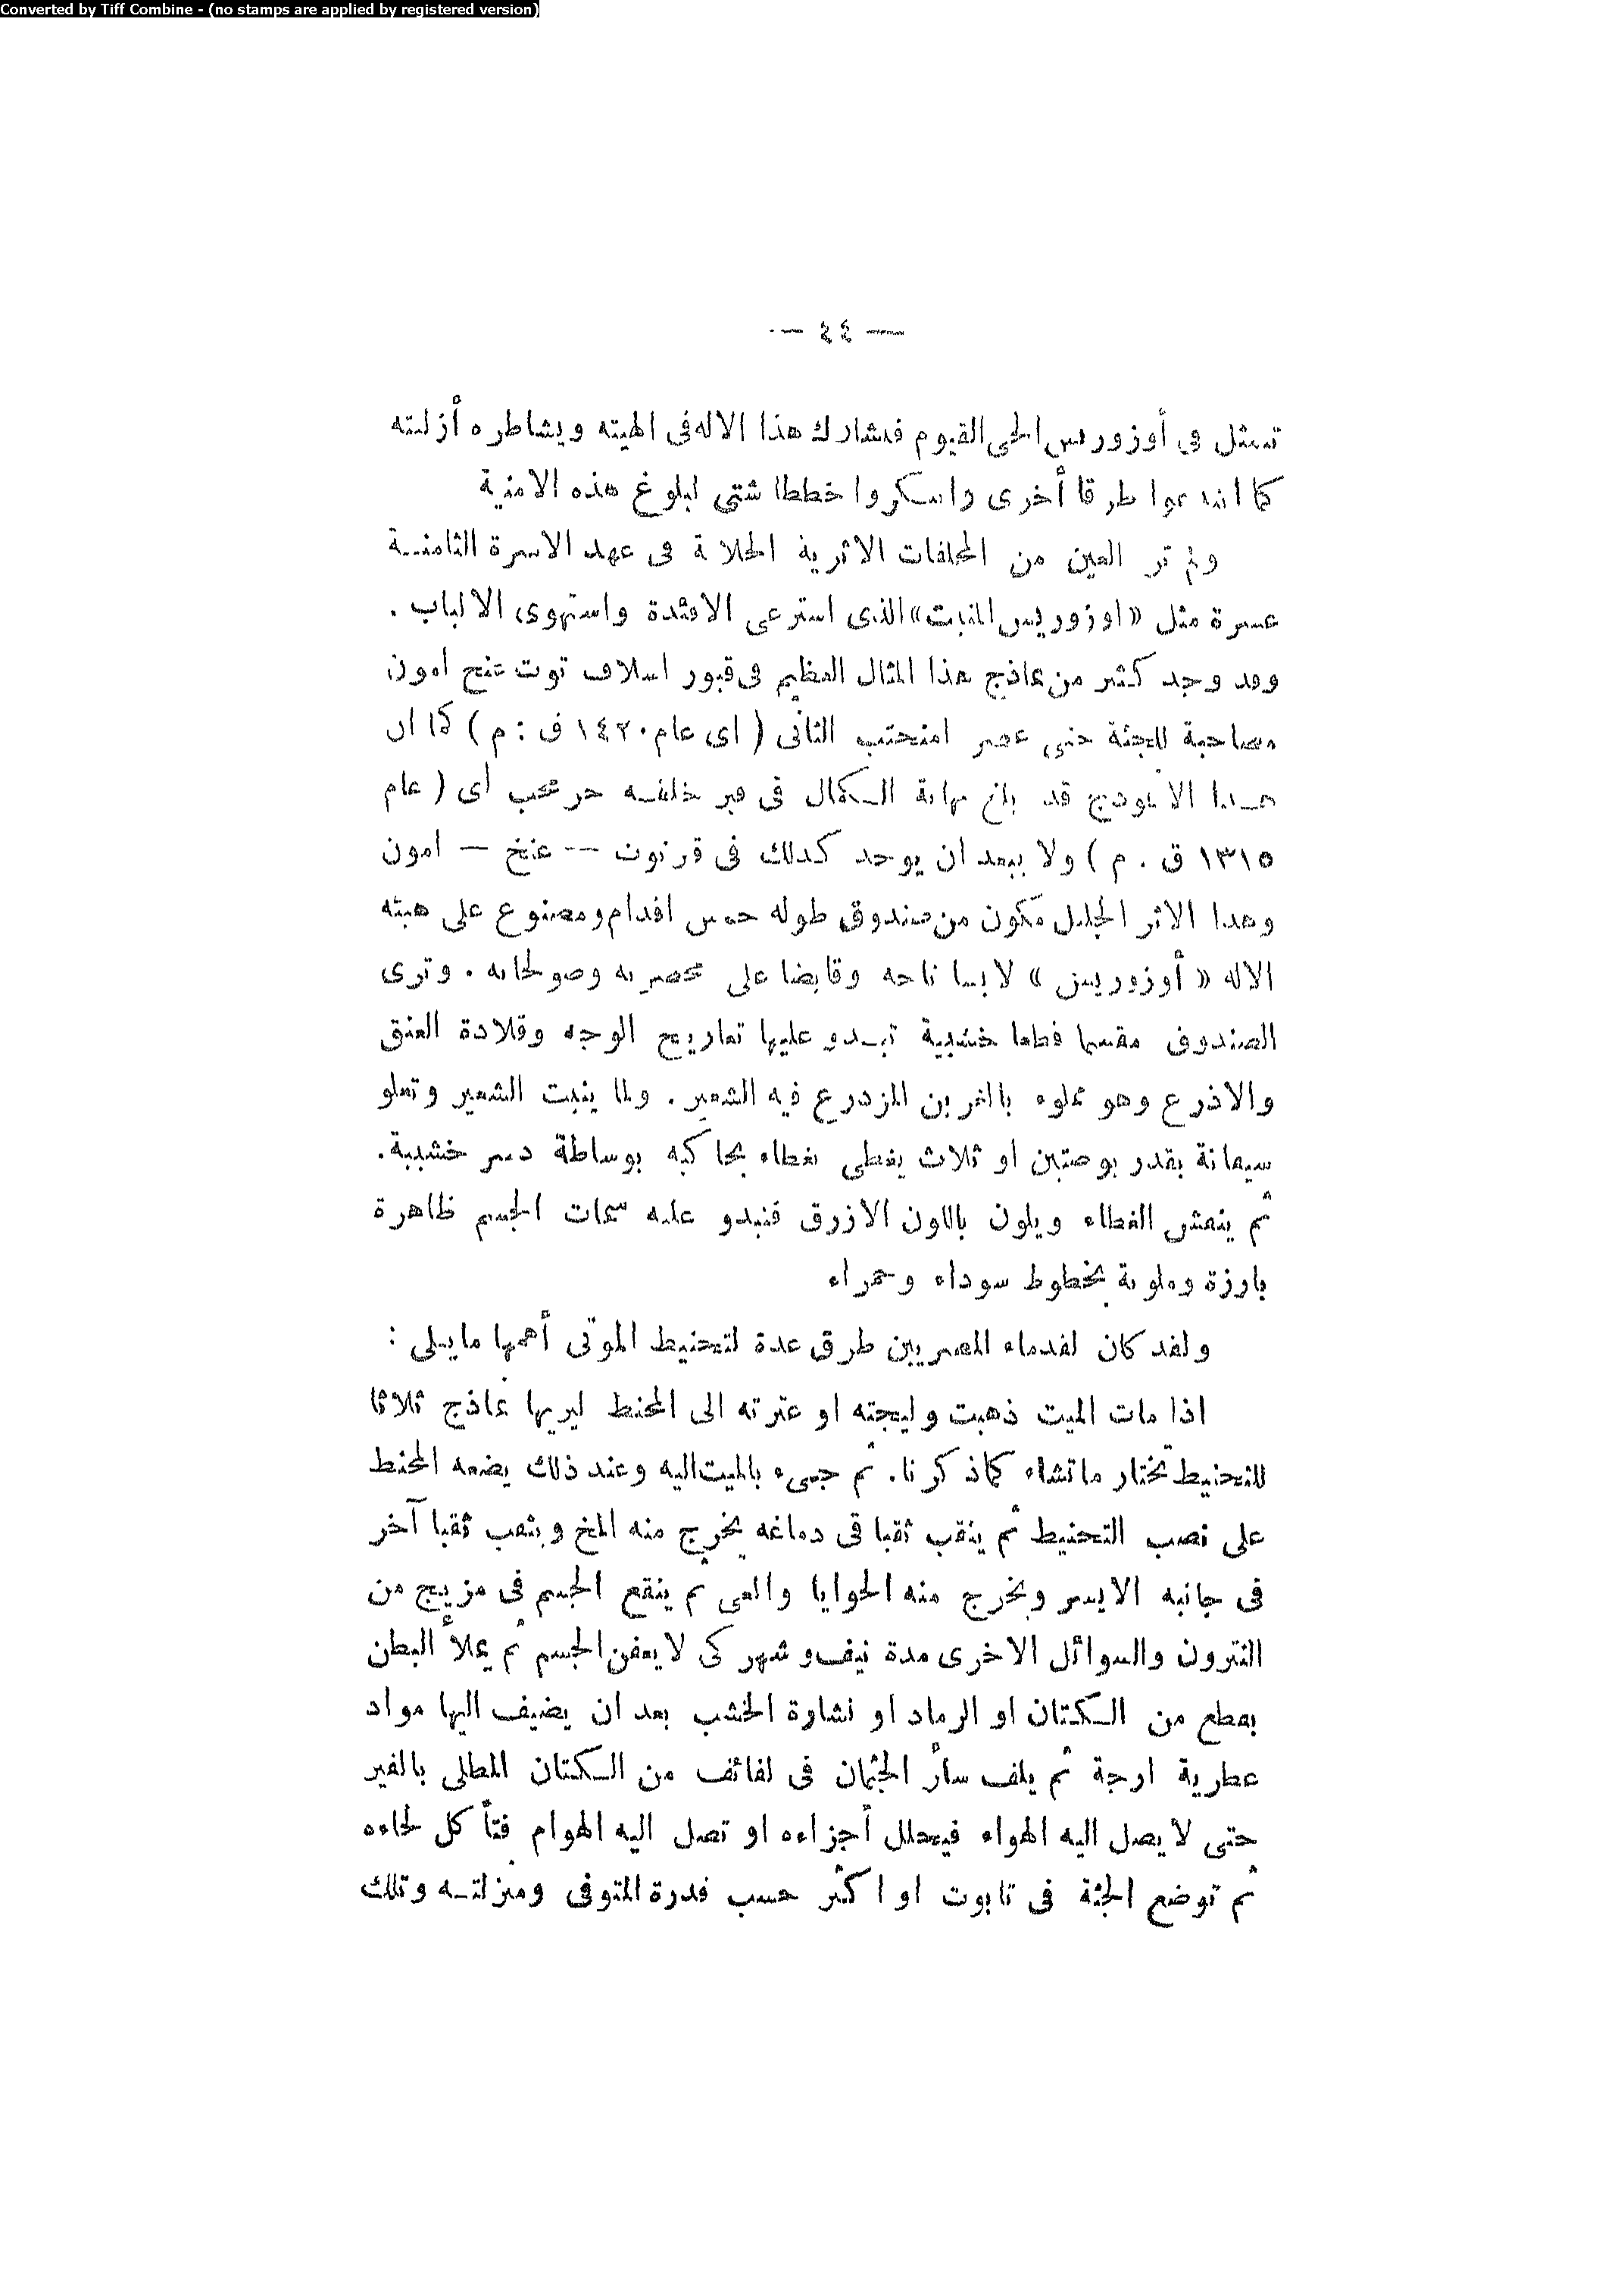 Converted by Tiff Combine - (no stamps are applied by registered version)
— ٤٤ —
تتمثل فى أوزوريس الحى القيوم فتشارك هذا الاله فى الهيته ويشاطره أزليته
كما اتبعوا طرقا أخرى وابتكروا خططا شتى لبلوغ هذه الامنية
ولم تر العين من المخلفات الاثرية الخلابة فى عهد الاسرة الثامنة
عشرة مثل «اوزوريس المنبت» الذى استرعى الافئدة واستهوى الالباب .
وقد وجد كثير من نماذج هذا المثال العظيم فى قبور اسلاف توت عنخ امون
مصاحبة للجثة حتى عصر امنحتب الثانى ( اى عام ١٤٢٠ ق : م ) كما ان
هذا الانموذج قد بلغ نهاية الكمال فى قبر خلفه حر محب أى ( عام
١٣١٥ ق . م ) ولا يبعد ان يوجد كذلك فى قبر توت -- عنخ — امون
وهذا الاثر الجليل مكون من صندوق طوله خمس اقدام ومصنوع على هيئة
الاله « أوزوريس » لابسا تاجه وقابضا على مخصرته وصولجانه . وترى
الصندوق مقسما قطعا خشبية تبدو عليها تعاريج الوجه وقلادة العنق
والاذرع وهو مملوء بالغرين المزدرع فيه الشعير . ولما ينبت الشعير وتعلو
سيقانه بقدر بوصتين او ثلاث يغطى بغطاء يحاكيه بوساطة دسر خشبية .
ثم ينقش الغطاء ويلون باللون الازرق فتبدو عليه سمات الجسم ظاهرة
بارزة وملونة بخطوط سوداء وحمراء
ولقد كان لقدماء المصريين طرق عدة لتحنيط الموتى أهمها ما يلى :
اذا مات الميت ذهبت وليجته او عترته الى المحنط ليريها نماذج ثلاثا
للتحنيط تختار ما تشاء كما ذكرنا . ثم جىء بالميت اليه وعند ذلك يضعه المحنط
على نصب التحنيط ثم ينقب ثقبا فى دماغه يخرج منه المخ ويثقب ثقبا آخر
فى جانبه الايسر ويخرج منه الحوايا والمعى ثم ينقع الجسم فى مزيج من
النترون والسوائل الاخرى مدة نيف وشهر كى لا يعفن الجسم ثم يملأ البطن
بقطع من الكتان او الرماد او نشارة الخشب بعد ان يضيف اليها مواد
عطرية ارجة ثم يلف سائر الجثمان فى لفائف من الكتان المطلى بالقير
حتى لا يصل اليه الهواء فيحلل أجزاءه او تصل اليه الهوام فتأكل لحاءه
ثم توضع الجثة فى تابوت او اكثر حسب قدرة المتوفى ومنزلته وتلك